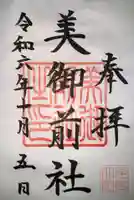 奉拝
美御前社
令和六年十月五日